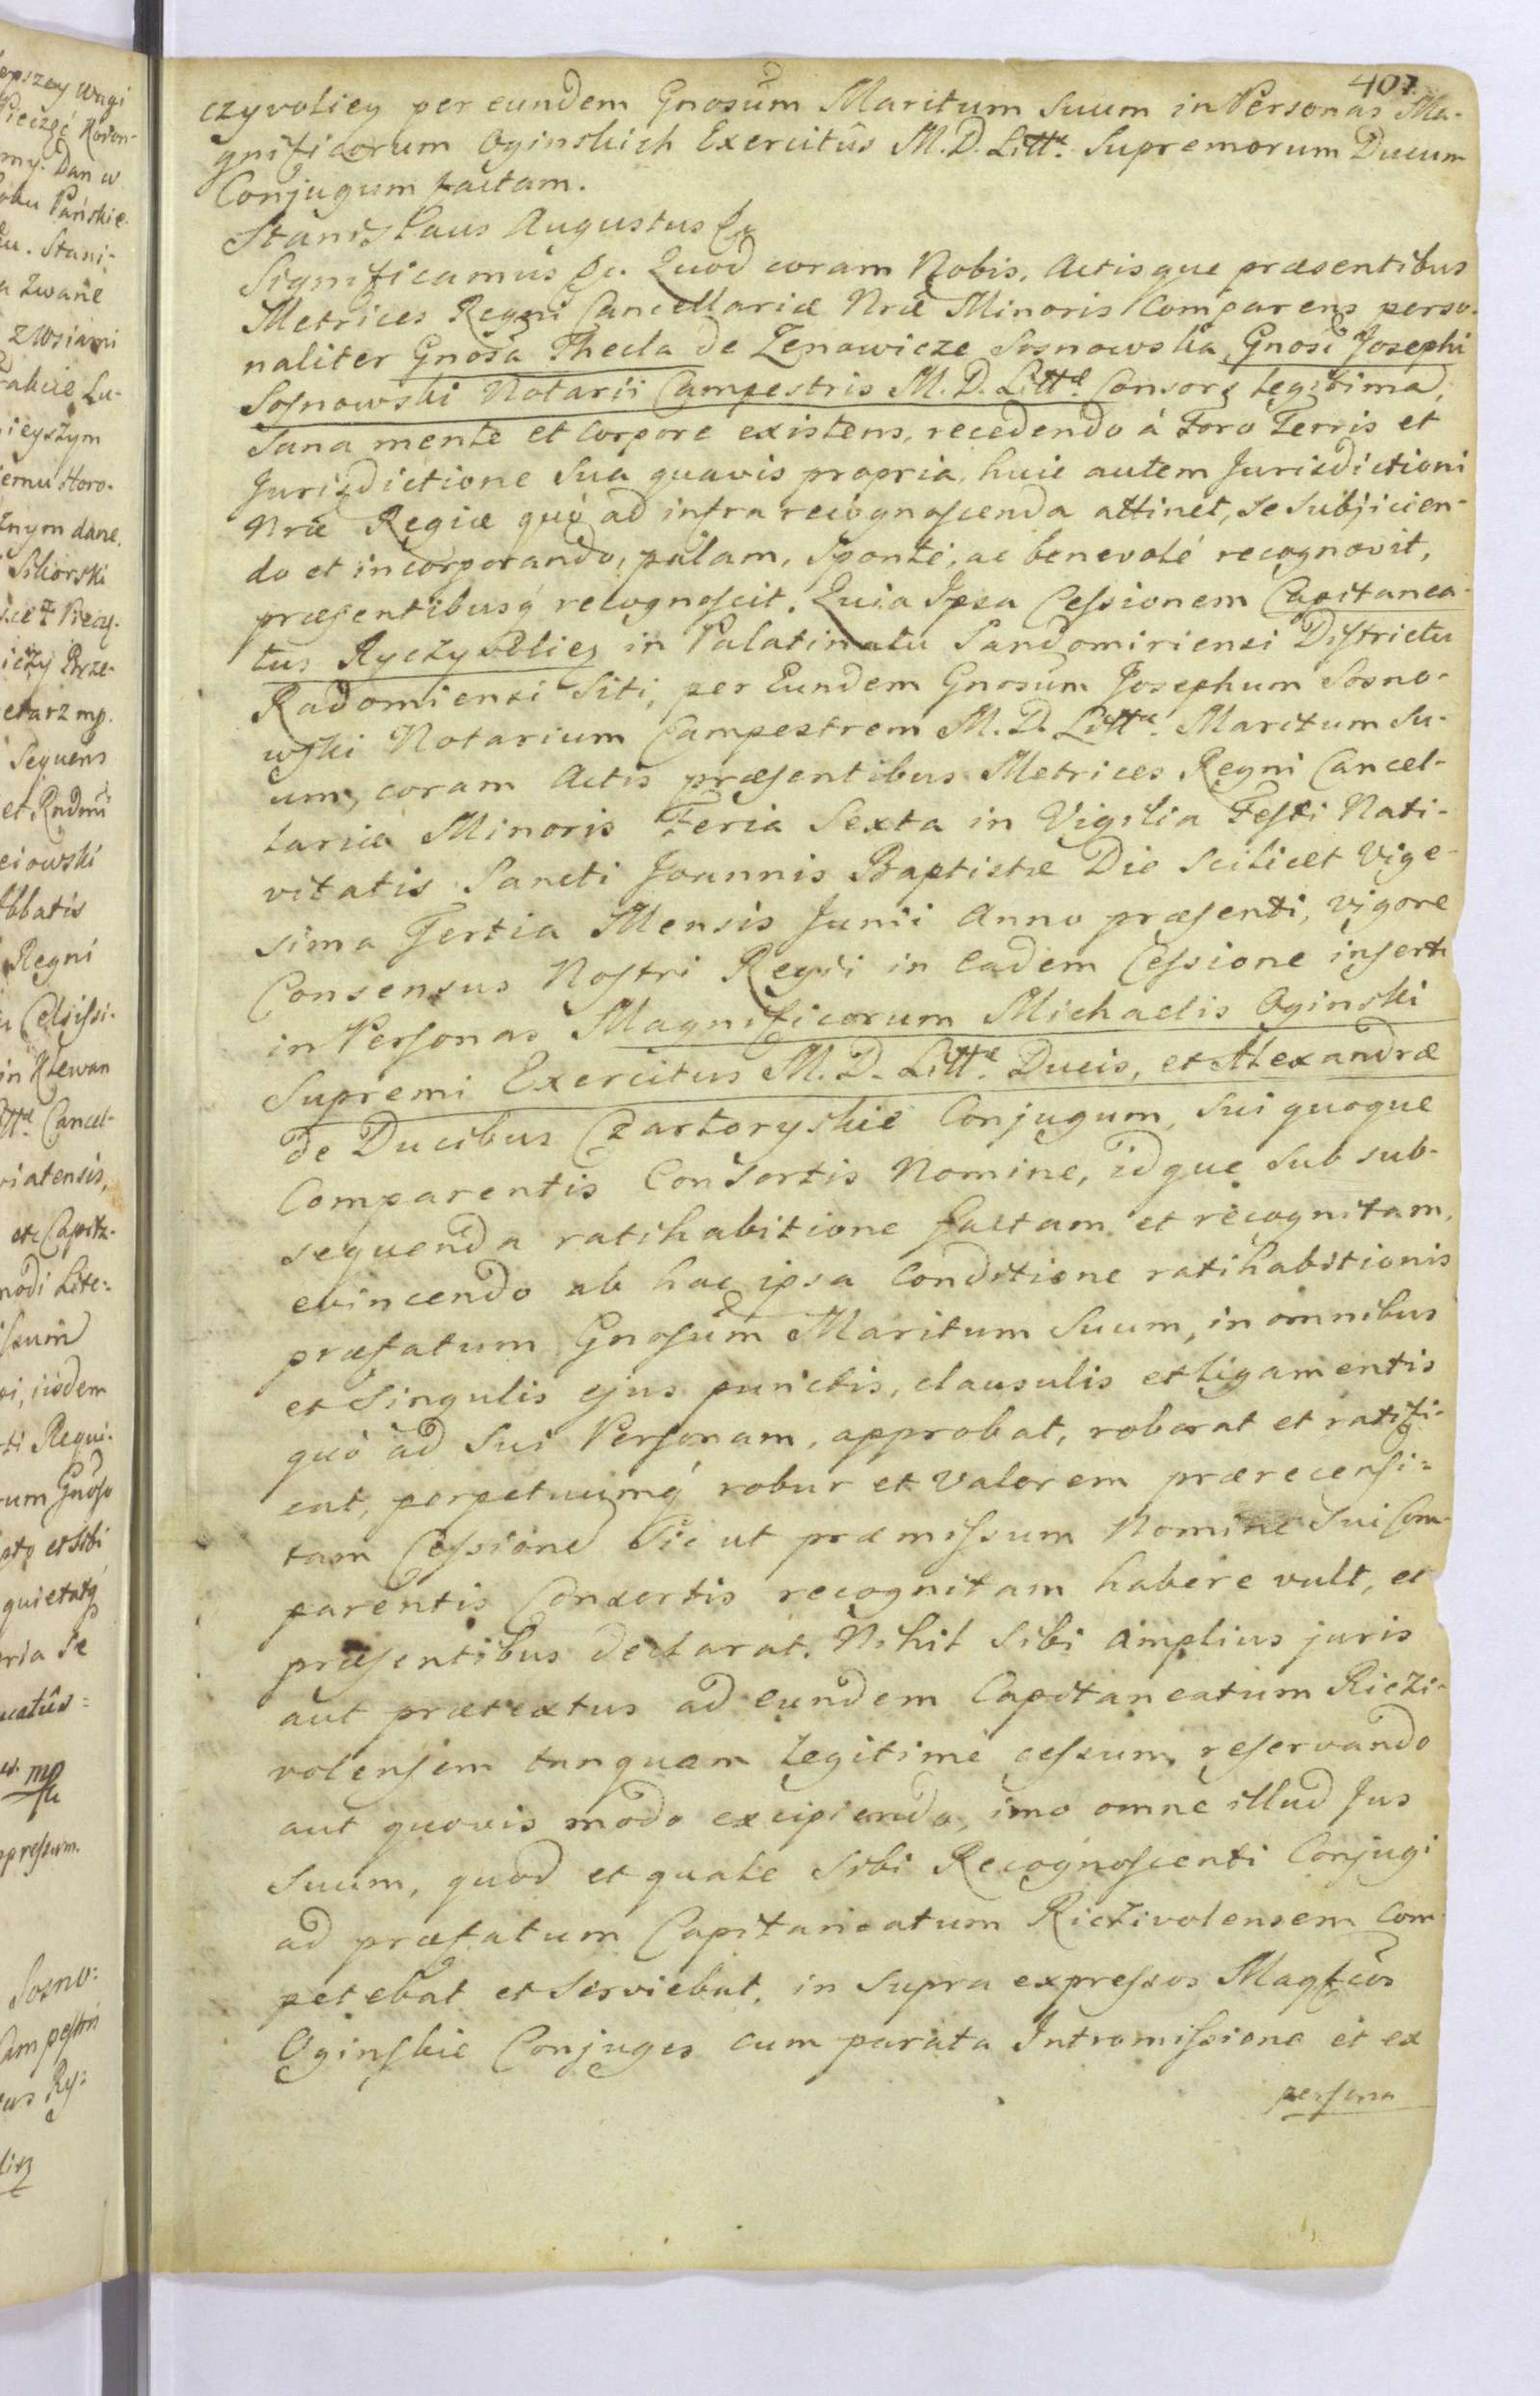 407.
czyvoliey per eundem Gnosum Maritum Suum in Personas Ma-
gnificorum Oginskich Exercitûs M.D. Littæ. Supremorum Ducum
Conjugum factam.
Stanislaus Augustus &
Significamus &c. Quod coram Nobis, Actisque præsentibus
Metrices Regni Cancellariæ Nræ Minoris Comparens perso-
naliter Gnosa Thecla de Zenowicze Sosnowska, Gnosi Josephi
Sosnowski Notarii Campestris M.D. Littæ. Consors legitima,
Sana mente et corpore existens, recedendo á Foro Terris et
Jurisdictione Sua quavis propria, huic autem Jurisdictioni
Nræ Regiæ quò ad infra recognoscenda attinet, se subjicien-
do et incorporando, palam, sponté, ac benevolé recognovit,
præsentibusq recognoscit. Quia Ipsa Cessionem Capitanea-
tus Ryczyvoliey in Palatinatu Sandomiriensi Districtu
Radomiensi Siti, per Eundem Gnosum Josephum Sosno-
wski Notarium Campestrem M.D. Littæ. Maritum Su-
um, coram Actis præsentibus Metrices Regni Cancel-
lariæ Minoris Feria Sexta in Vigilia Festi Nati-
vitatis Sancti Joannis Baptistæ Die Scilicet Vige-
sima Tertia Mensis Junii Anno præsenti, vigore
Consensus Nostri Regii in eadem Cessione inserti
in Personas Magnificorum Michaelis Oginski
Supremi Exercitus M.D. Littæ. Ducis, et Alexandræ
de Ducibus Czartoryskie Conjugum, sui quoque
Comparentis Consortis Nomine, idque sub sub-
sequenda ratihabitione factam et recognitam,
evincendo ab hac ipsa Conditione ratihabitionis
præfatum Gnosum Maritum Suum, in omnibus
et Singulis ejus punctis, clausulis et ligamentis
quò ad Sui Personam, approbat, roborat et ratifi-
cat, perpetuumq robur et Valorem prærecensi=
tam Cessione Sic ut præmissum Nomine Sui Com-
parentis Consortis recognitam habere vult, et
præsentibus declarat. Nihil Sibi amplius juris
aut prætextus ad eundem Capitaneatum Riczi-
volensem tanquam legitime cessum, reservando
aut quovis modo excipiendo, imo omne illud Jus
Suum, quod et quale Sibi Recognoscenti Conjugi
ad præfatum Capitaneatum Riczivolensem Com-
petebat et Serviebat, in Supra expressos Magfcos
Oginskie Conjuges cum parata Intromissione et ex
persona